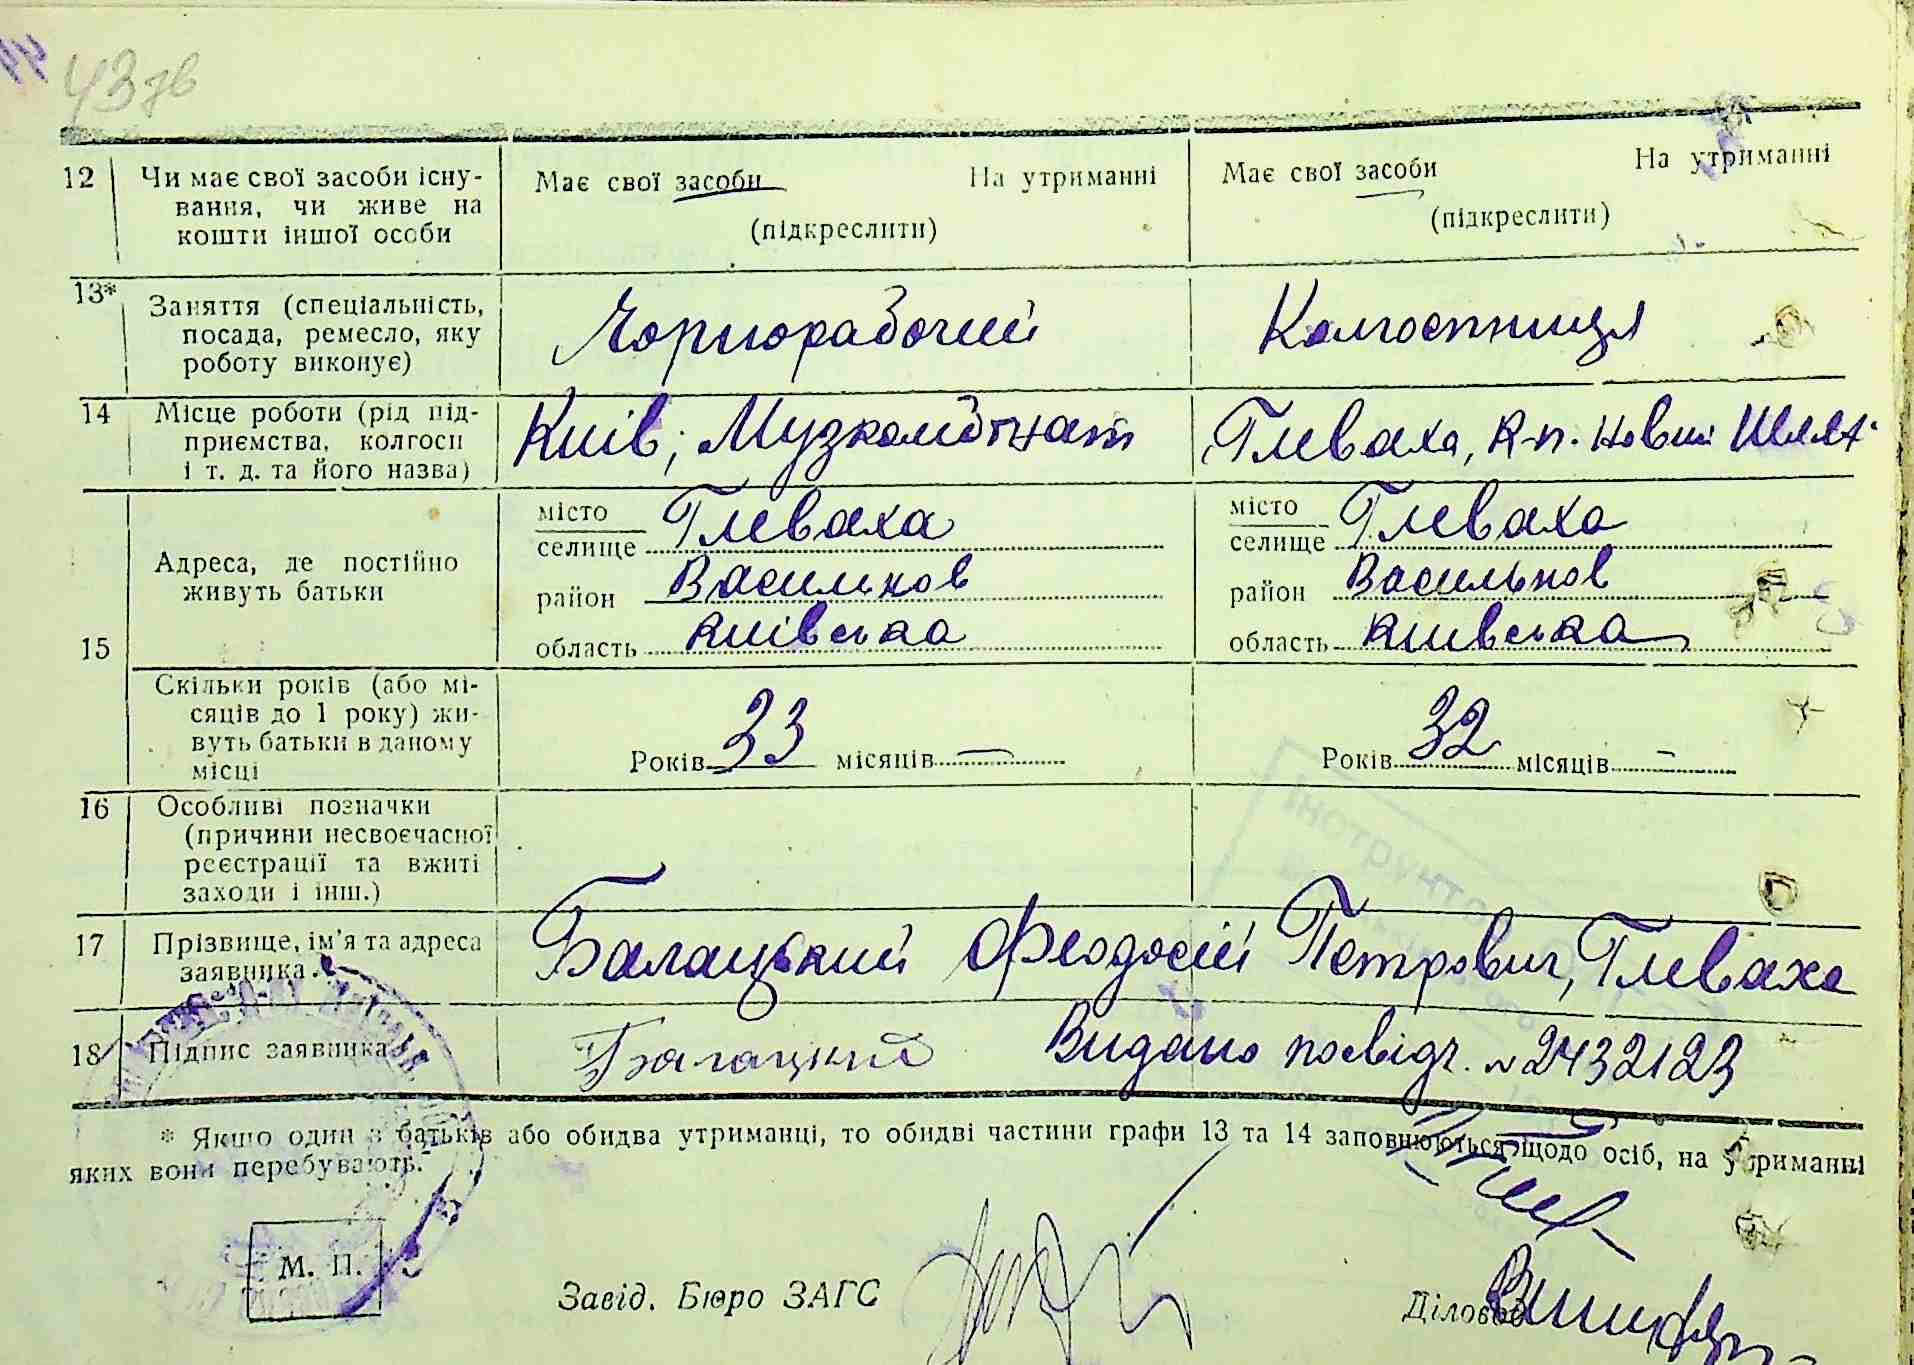 43зв
12 Чи має свої засоби існу-
вання, чи живе на
кошти іншої особи
Має свої засоби На утриманні
(підкреслити)
Має свої засоби На утриманні
(підкреслити)
13* Заняття (спеціальність,
посада, ремесло, яку
роботу виконує)
Чорнорабочий
Колгоспниця
14 Місце роботи (рід під-
приємства, колгосп
і т. д. та його назва)
Київ, Музкомбінат
Глеваха, к-п. Новий Шлях
15 Адреса, де постійно
живуть батьки
місто
селище Глеваха
район Васильков
область Київська
місто
селище Глеваха
район Васильков
область Київська
Скільки років (або мі-
сяців до 1 року) жи-
вуть батьки в даному
місці
Років 33 місяців —
Років 32 місяців —
16 Особливі позначки
(причини несвоєчасної
реєстрації та вжиті
заходи і інш.)
17 Прізвище, ім'я та адреса
заявника
Балацький Феодосій Петрович, Глеваха
18 Підпис заявника
Балацкий Видано посвідч. № 2432123
* Якшо один з батьків або обидва утриманці, то обидві частини графи 13 та 14 заповнюються щодо осіб, на утриманні
яких вони перебувають.
М. П.
Завід. Бюро ЗАГС
Діловод